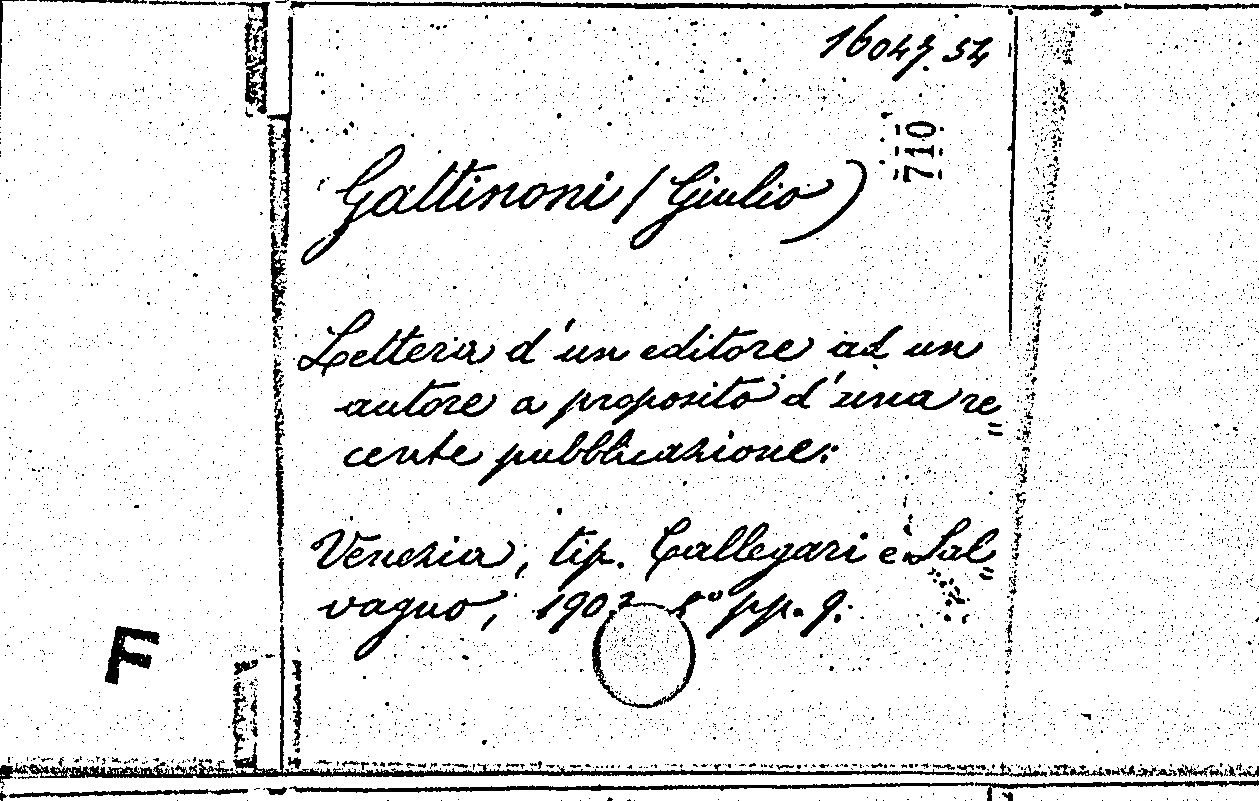 16047.54
710
Gattinoni (Giulio)
Lettera d'un editore ad un
autore a proposito d'una re=
cente pubblicazione:
Venezia, tip. Callegari e Sal=
vagno, 8° pp. 9.
F